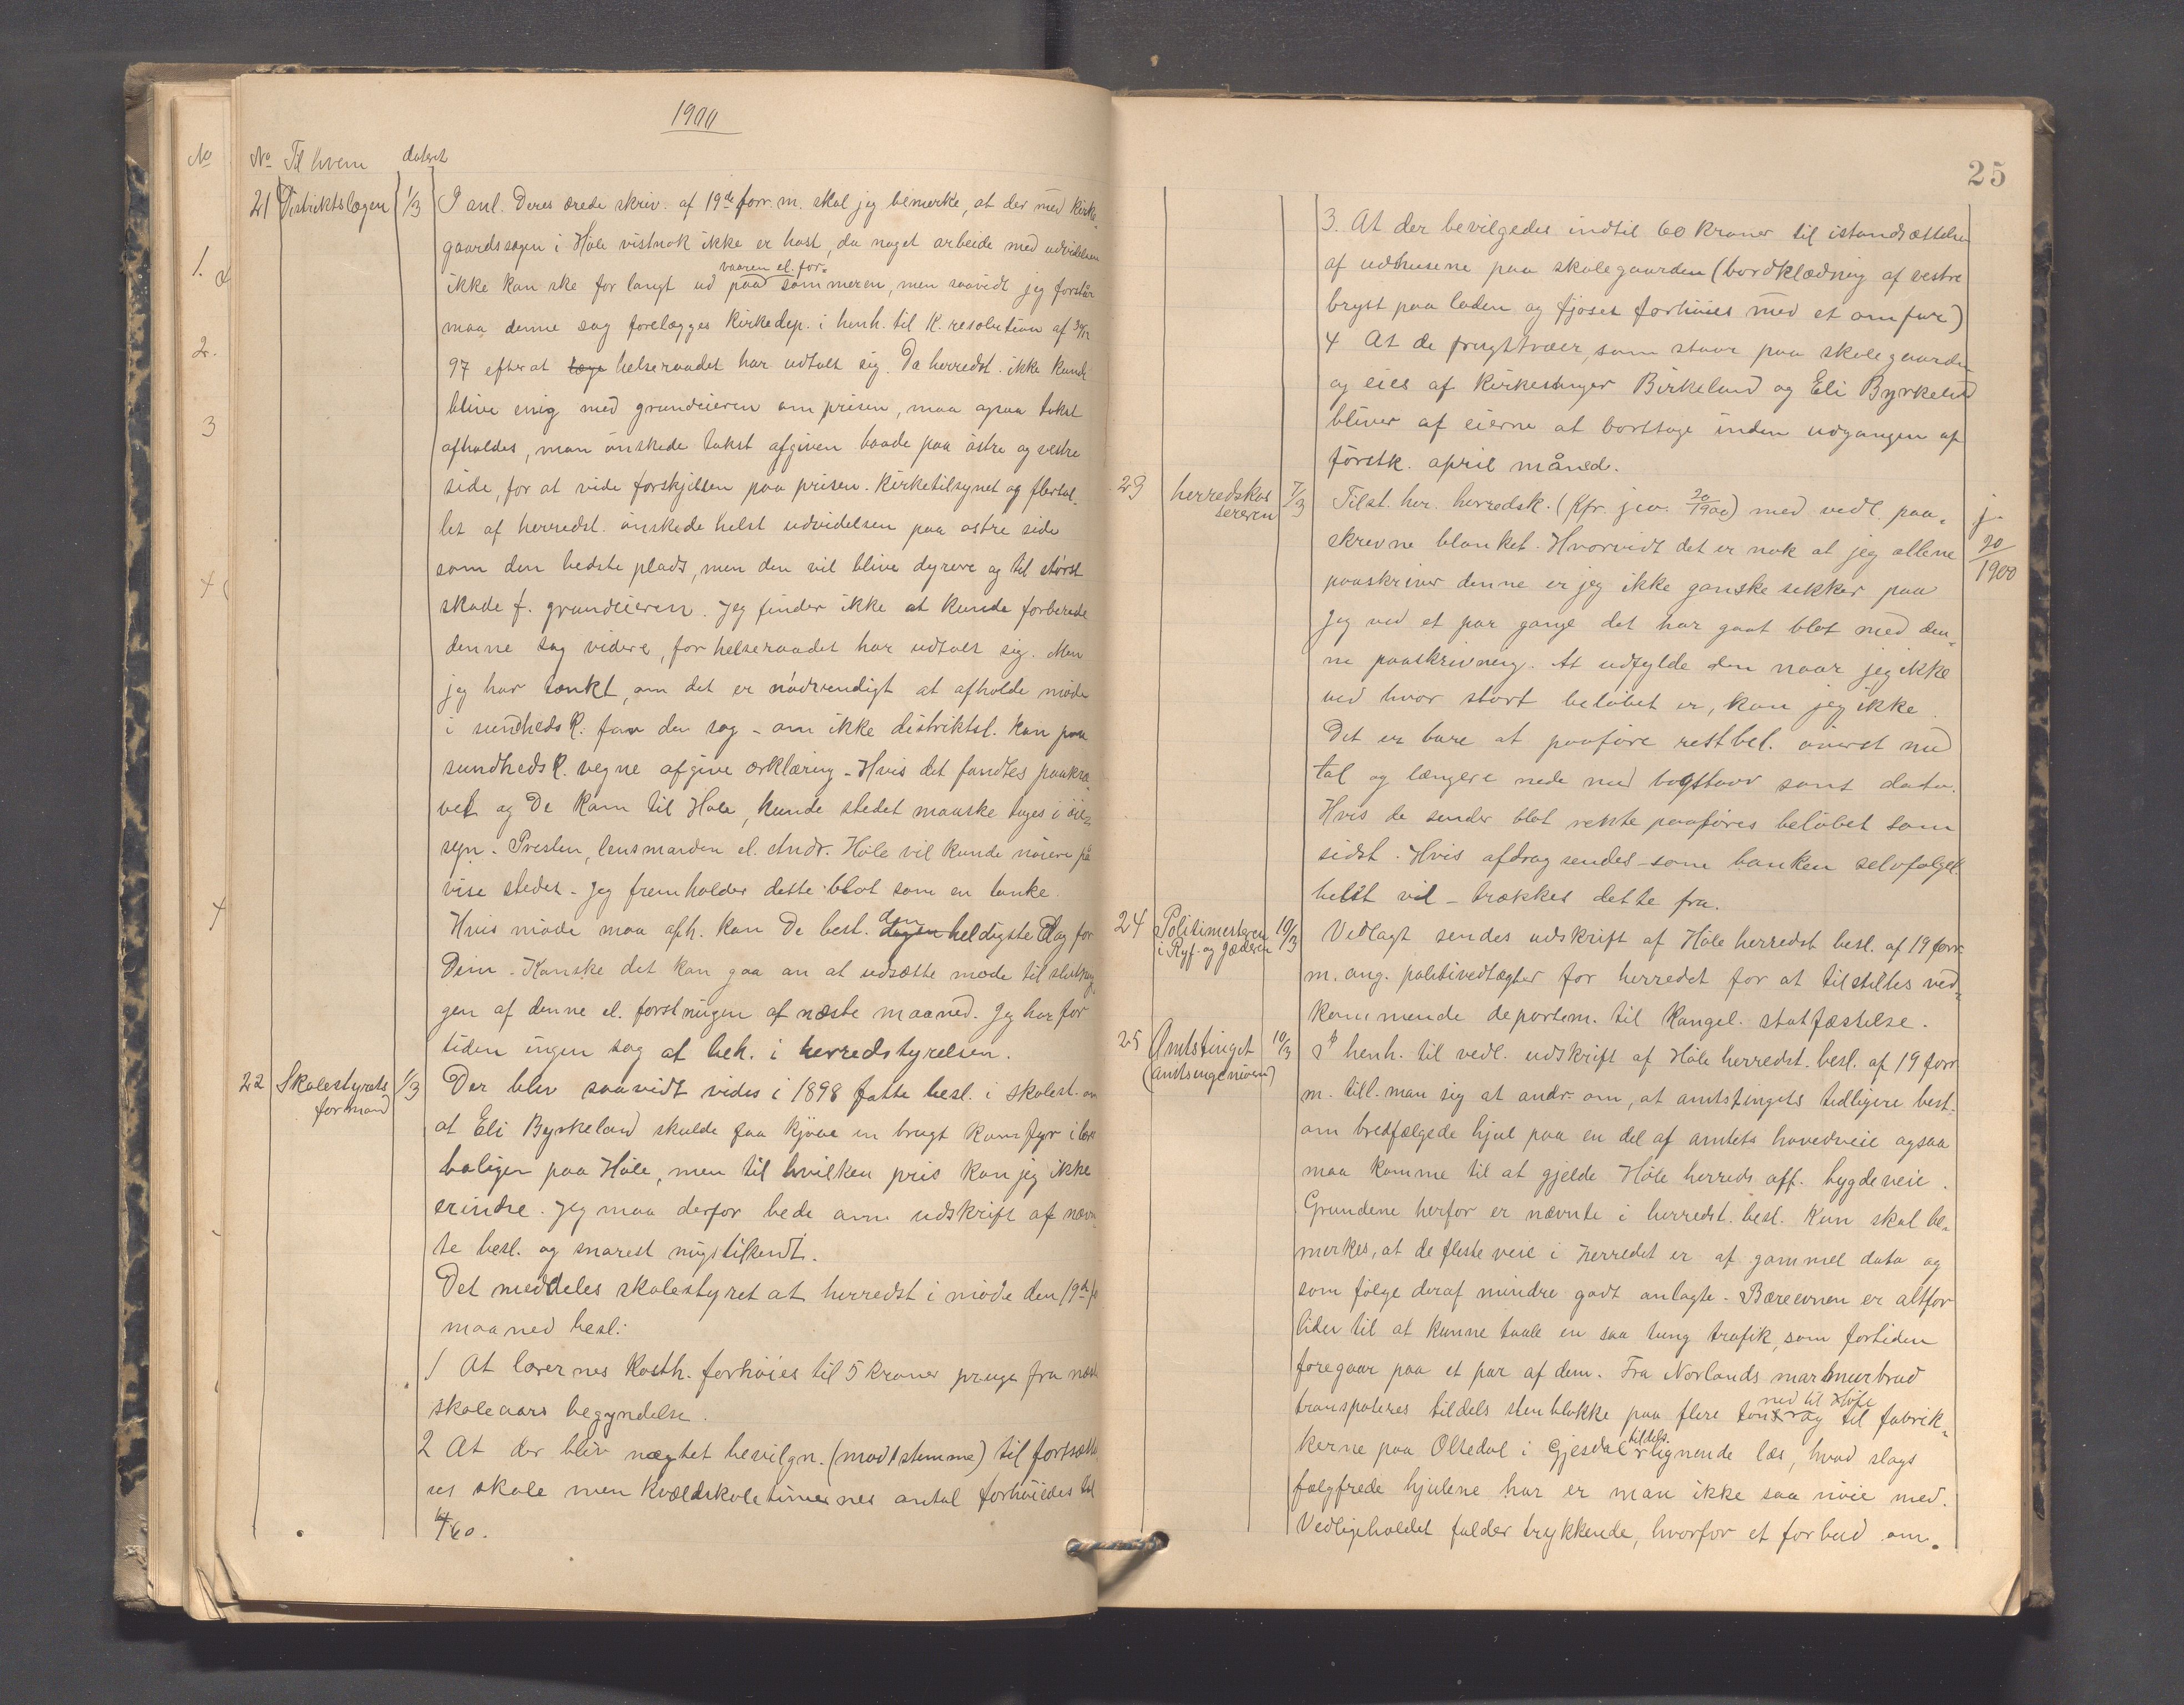 1900
No Til hvem dateret
21 Distriktslægen 1/3 I anl. Deres ærede skriv. af 19de forr. m. skal jeg bemerke, at der med kirke-
gaardssagen i Høle vistnok ikke er hast, da noget arbeide med udvidelsen
vaaren el. for-
ikke kan ske for langt ud paa sommeren, men saavidt jeg forstår
maa denne sag forelægges Kirkedep. i henh. til K. resolution af
97 efterat læge helseraadet har udtalt sig. Da herredst. ikke kunde
blive enig med grundeieren om prisen, maa ogsaa takst
afholdes, man ønskede takst afgiven baade paa østre og vestre
side, for at vide forskjellen paa prisen. Kirketilsynet og flertal-
let af herredst. ønskede helst udvidelsen paa østre side
som den bedste plads, men den vil blive dyrere og til størst
skade f. grundeieren. Jeg finder ikke at kunde forberede
denne sag videre, før helseraadet har udtalt sig. Men
jeg har tænkt, om det er nødvendigt at afholde møde
i sundheds K. for den sag - om ikke distriktsl. kan paa
sundheds K. vegne afgive erklæring - Hvis det fandtes paakræ-
vet og De kom til Høle, kunde stedet maaske tages i øie-
syn - Presten, lensmanden el. Andr. Høle vil kunde nøiere på
vise stedet - Jeg fremholder dette blot som en tanke.
Hvis møde maa afh. kan De best. dagen den heldigste dag for
Dem - Kanske det kan gaa an at udsætte møde til slutnin-
gen af denne el. førstningen af næste maaned. Jeg har for
tiden ingen sag at beh. i herredstyrelsen.
22 Skolestyrets formand 1/3 Der blev saavidt vides i 1898 fatte besl. i skolest. om
at Eli Byrkeland skulde faa kjøbe en brugt komfyr i
boligen paa Høle, men til hvilken pris kan jeg ikke
erindre. Jeg maa derfor bede om udskrift af nævn-
te besl. og snarest mig tilsendt.
Det meddeles skolestyret at herredst i møde den 19de f.
maaned besl:
1 At lærernes Kosth. forhøies til 5 kroner pr uge fra næste
skoleaars begyndelse.
2 At der bliv nægtet bevilgn. (mod 1 stemme) til fortsættel-
ses skole men kveldskoletimernes antal forhøiedes til
60.
25
3. At der bevilgedes indtil 60 kroner til istandsættelse
af udhusene paa skolegaarden (bordklædning af vestre
bryst paa laden og fjøset forhøies med et omfar)
4 At de frugttræer, som staar paa skolegaarden
og eies af Kirkesanger Birkeland og Eli Byrkeland
bliver af eierne at borttage inden udgangen af
førstk. april måned.
23 herredskas sereren 7/3 Tilst. hr. herredsk. (Kfr. jev. 20/1900) med vedl. paa-
j. 20/1900
skrevne blanket. Hvorvidt det er nok at jeg allene
paaskriver denne er jeg ikke ganske sikker paa
Jeg ved et par gange det har gaat blot med den-
ne paaskrivning. At udfylde den naar jeg ikke
ved hvor stort beløbet er, kan jeg ikke.
Det er bare at paaføre restbel. øverst med
tal og længere nede med bogstav samt dato.
Hvis de sender blot rente paaføres beløbet som
sidst. Hvis afdrag sendes - som banken selvfølgel.
helst vil - trækkes dette fra.
24 Politimesteren i Ryf. og Jæderen 10/3 Vedlagt sendes udskrift af Høle herredst besl. af 19 forr.
m. ang. politivedtægter for herredet for at tilstilles ved-
kommende departem. til kongel. statfæstelse.
25 Amtstinget (amtsingeniøren) 10/3 I henh. til vedl. udskrift af Høle herredst. besl. af 19 forr
m. till. man sig at andr. om, at amtstingets tidligere best.
om bredfælgede hjul paa en del af amtets hovedveie ogsaa
maa komme til at gjelde Høle herreds off. bygdeveie.
Grundene herfor er nævnte i herredst. besl. Kun skal be-
merkes, at de fleste veie i herredet er af gammel data og
som følge deraf mindre godt anlagte - Bæreevnen er altfor
liden til at kunne taale en saa tung trafik, som fortiden
foregaar paa et par af dem. Fra Norlands marmorbrud
ned til Høle
transporteres tildels stenblokke paa flere tons og til fabrik-
tildels
kerne paa Oltedal i Gjesdal lignende læs, hvad slags
fælgfrede hjulene har er man ikke saa nøie med.
Vedligeholdet falder trykkende, hvorfor et forbud om